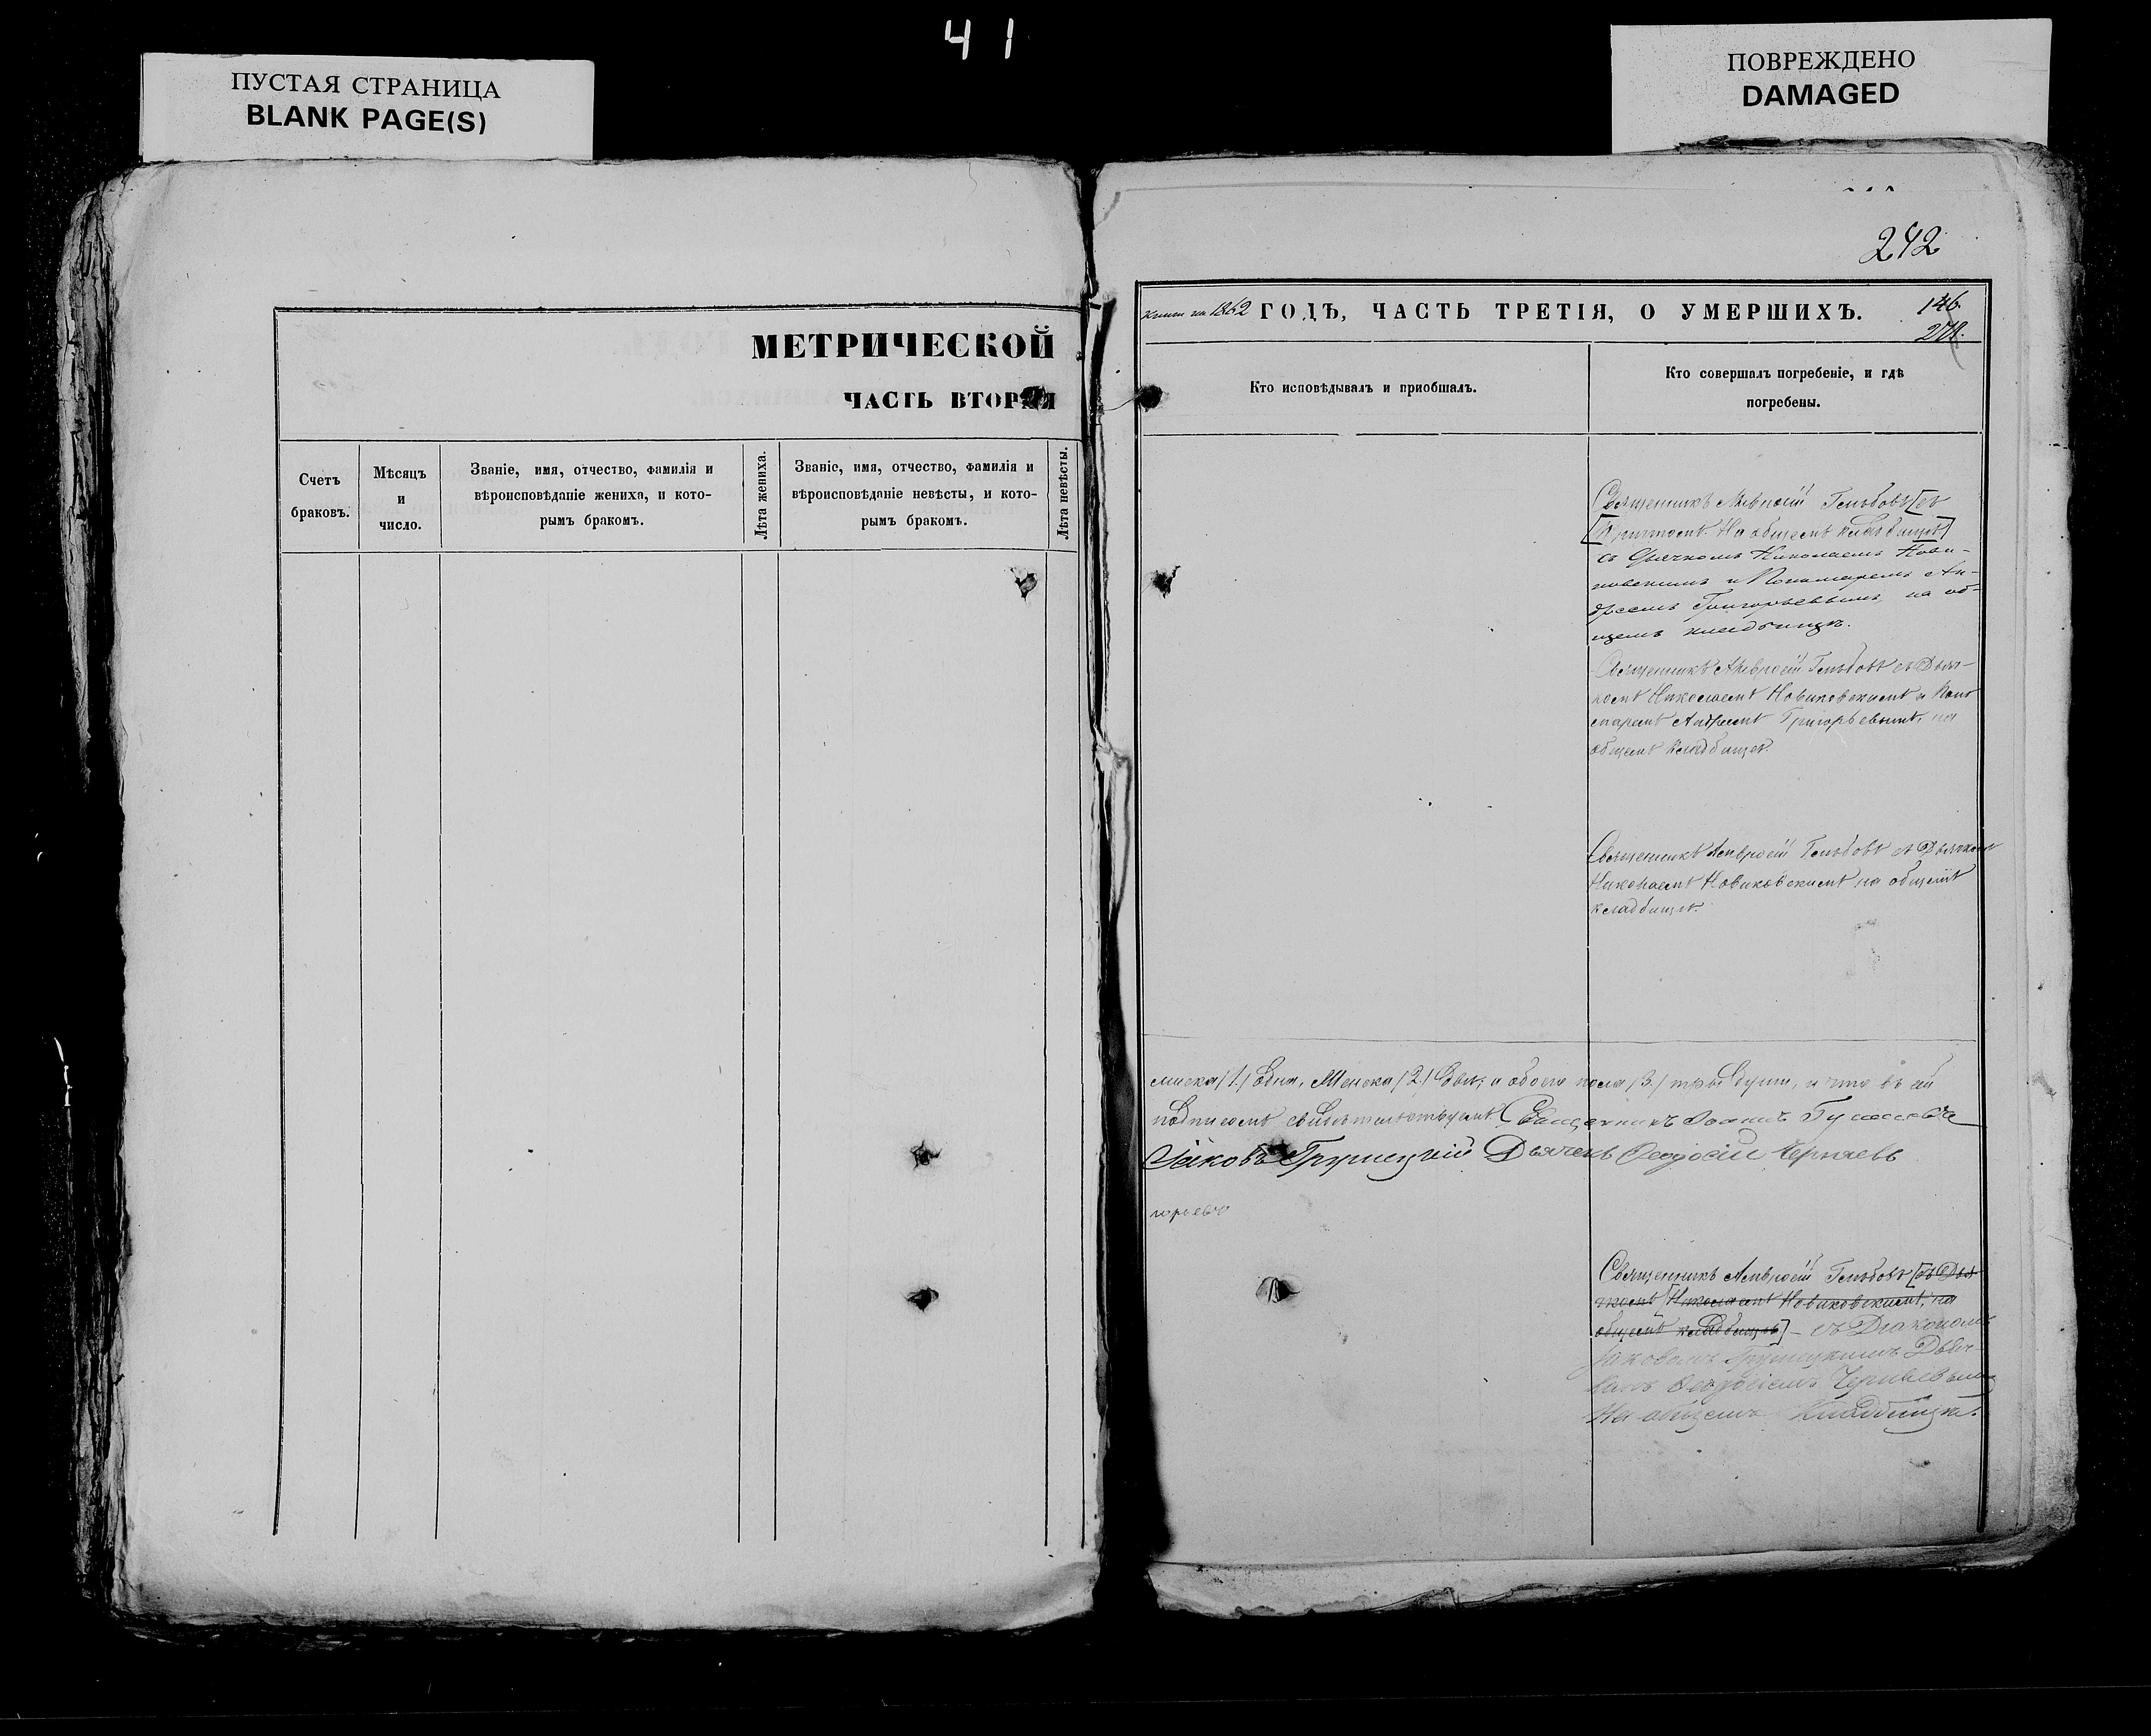 41
ПУСТАЯ СТРАНИЦА
BLANK PAGE(S)
ПОВРЕЖДЕНО
DAMAGED
МЕТРИЧЕСКОЙ
ЧАСТЬ ВТОРАЯ
Счетъ браковъ.
Мѣсяцъ и число.
Званіе, имя, отчество, фамилія и
вѣроисповѣданіе жениха, и кото-
рымъ бракомъ.
Лѣта жениха.
Званіе, имя, отчество, фамилія и
вѣроисповѣданіе невѣсты, и кото-
рымъ бракомъ.
Лѣта невѣсты.
242
книги на 1862 ГОДЪ, ЧАСТЬ ТРЕТІЯ, О УМЕРШИХЪ.
146.
Кто исповѣдывалъ и пріобщалъ.
Кто совершалъ погребеніе, и гдѣ
погребены.
Священникъ Амвросій [съ
Причтомъ. На общемъ кладбищѣ]
съ Дьячкомъ Николаемъ Нови-
ковскимъ и Пономаремъ Ан-
дреемъ Григорьевымъ, на об-
щемъ кладбищѣ.
Священникъ Амвросій съ Дьяч-
комъ Николаемъ Новиковскимъ и Поно
маремъ Андреемъ Григорьевымъ, на
общемъ кладбищѣ.
Священникъ Амвросій съ Дьячкомъ
Николаемъ Новиковскимъ на общемъ
кладбищѣ.
/1./ одна, Женска /2./ двѣ, и обоего пола /3./ три души, и что въ
подписомъ свидѣтельствуемъ. Священникъ Іоаннъ
Іаковъ Грушецкій Дьячекъ Ѳеодосій Черняевъ
Священникъ Амвросій [съ Дья
чкомъ [Николаемъ Новиковскимъ, на
общемъ кладбищѣ] – съ Діакономъ
Іаковомъ Грушецкимъ Дьяч-
комъ Ѳеодосіемъ Черняевымъ
На общемъ Кладбищѣ.